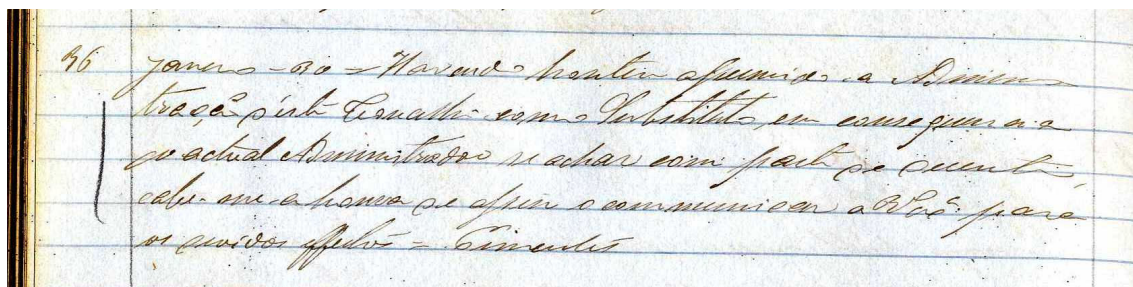 36 Janeiro - 30 = Havendo hontem assumido a Adminis
tração d'este Concelho como Substituto, em consequencia
do actual Administrador se achar com parte de doente,
cabe-me a honra de assim o communicar a V. Exª para
os devidos effeitos = Pimentel